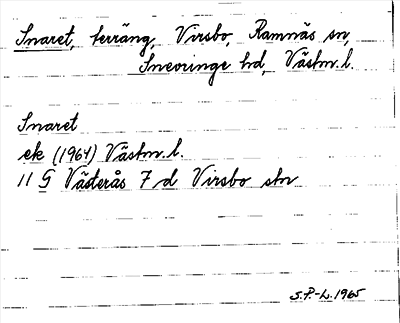 Snaret, terräng, Virsbo, Ramnäs sn,
Snevringe hd, Västm. l.
Snaret
ek (1964) Västm. l.
11 G Västerås 7 d Virsbo stn
S.P.-L. 1965